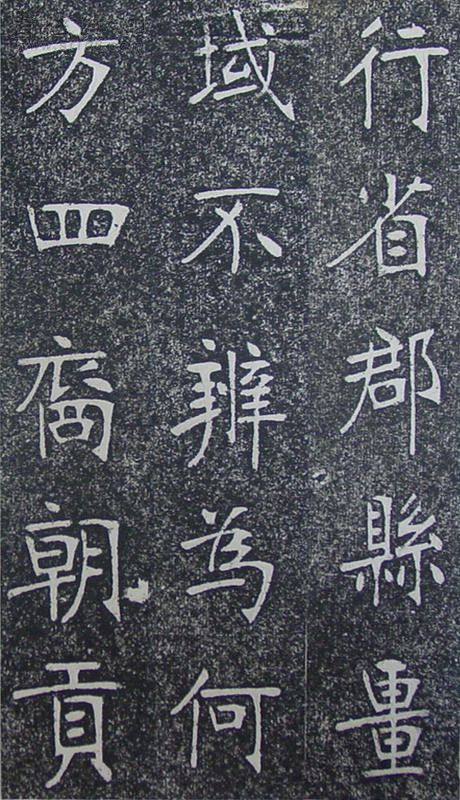 行省郡縣畺
域不辨為何
方四裔朝貢